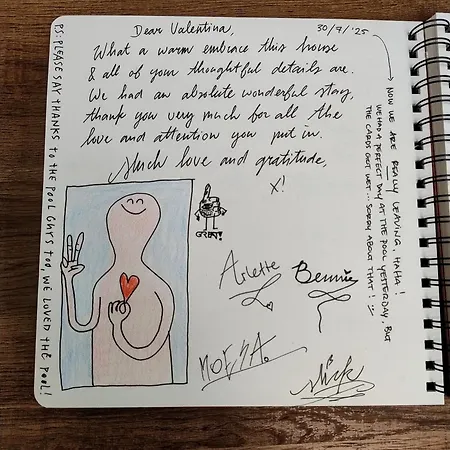 Dear Valentina,
30/7/'25
What a warm embrace this house
& all of your thoughtful details are.
We had an absolute wonderful stay,
thank you very much for all the
love and attention you put in.
Much love and gratitude,
X!
GREAT!
Arlette
Bennie
MOESA.
Nick
NOW WE ARE REALLY LEAVING, HAHA!
WE HAD A PERFECT DAY AT THE POOL YESTERDAY, BUT
THE CARDS GOT WET... SORRY ABOUT THAT!
PS: PLEASE SAY THANKS TO THE POOL GUYS TOO, WE LOVED THE POOL!